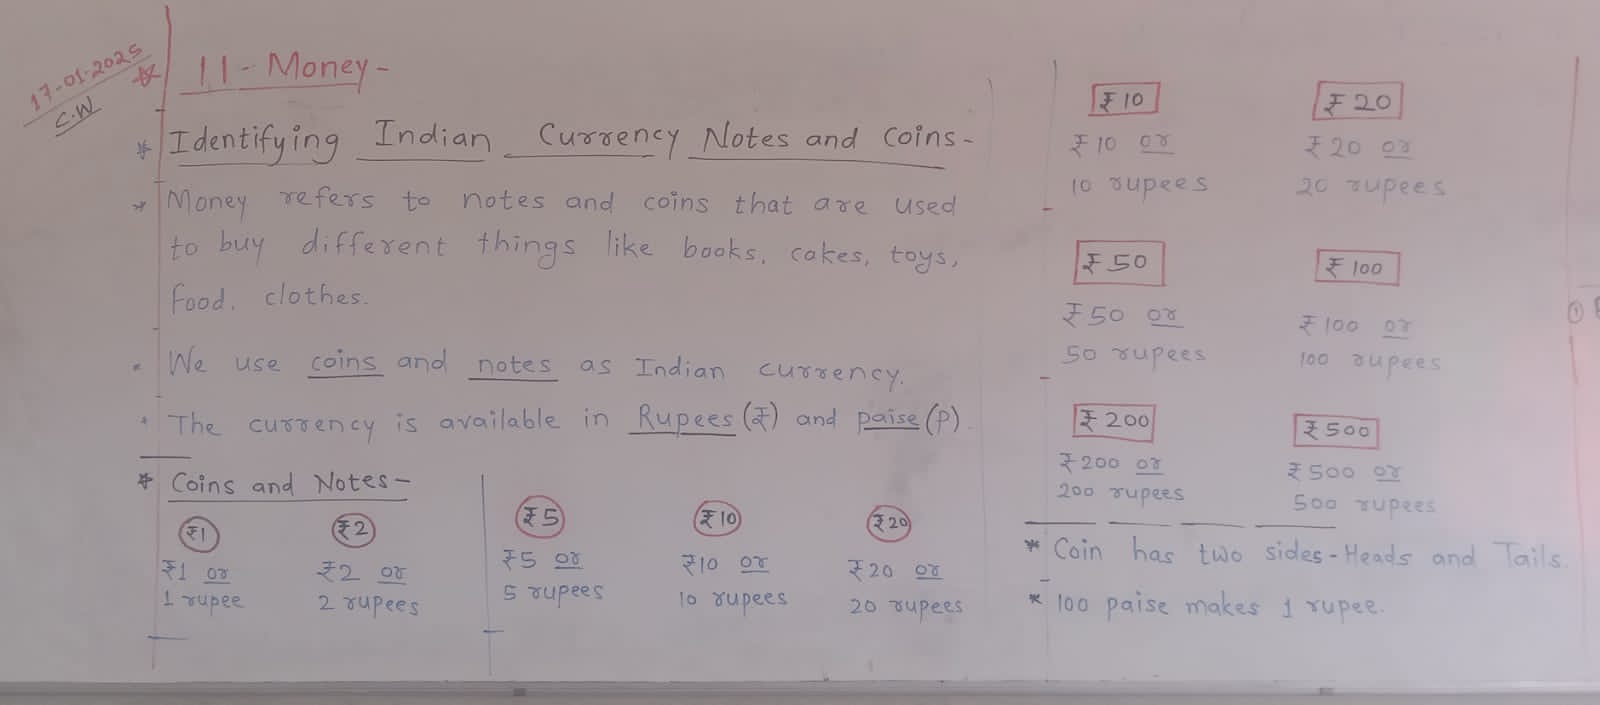 17-01-2025
C.W
11- Money-
* Identifying Indian Currency Notes and Coins-
* Money refers to notes and coins that are used
to buy different things like books, cakes, toys,
food, clothes.
* We use coins and notes as Indian currency.
* The currency is available in Rupees (₹) and paise (p).
* Coins and Notes-
₹1 ₹2 ₹5 ₹10 ₹20
₹1 or ₹2 or ₹5 or ₹10 or ₹20 or
1 rupee 2 rupees 5 rupees 10 rupees 20 rupees
₹10 ₹20
₹10 or ₹20 or
10 rupees 20 rupees
₹50 ₹100
₹50 or ₹100 or
50 rupees 100 rupees
₹200 ₹500
₹200 or ₹500 or
200 rupees 500 rupees
* Coin has two sides-Heads and Tails.
* 100 paise makes 1 rupee.
①